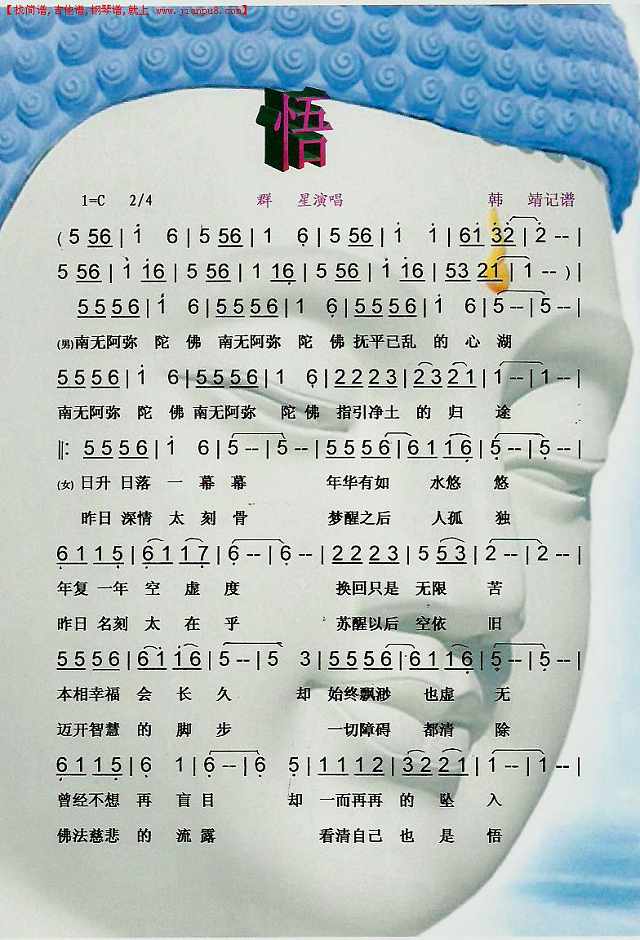 【 找简谱,吉他谱,钢琴谱,就上 www.jianpu8.com】
悟
1=C 2/4 群 星演唱 韩 靖记谱
( 5 56 | 1 6 | 5 56 | 1 6 | 5 56 | 1 1 | 61 32 | 2 -- |
5 56 | 1 16 | 5 56 | 1 16 | 5 56 | 1 16 | 53 21 | 1 -- ) |
5556 | 1 6 | 5556 | 1 6 | 5556 | 1 6 | 5 -- | 5 -- |
(男)南无阿弥 陀 佛 南无阿弥 陀 佛 抚平已乱 的 心 湖
5556 | 1 6 | 5556 | 1 6 | 2223 | 2321 | 1 -- | 1 -- |
南无阿弥 陀 佛 南无阿弥 陀 佛 指引净土 的 归 途
‖: 5556 | 1 6 | 5 -- | 5 -- | 5556 | 6116 | 5 -- | 5 -- |
(女) 日升 日落 一 幕 幕 年华有如 水悠 悠
昨日 深情 太 刻 骨 梦醒之后 人孤 独
6115 | 6117 | 6 -- | 6 -- | 2223 | 5 53 | 2 -- | 2 -- |
年复 一年 空 虚 度 换回只是 无限 苦
昨日 名刻 太 在 乎 苏醒以后 空依 旧
5556 | 6116 | 5 -- | 5 3 | 5556 | 6116 | 5 -- | 5 -- |
本相幸福 会 长 久 却 始终飘渺 也虚 无
迈开智慧 的 脚 步 一切障碍 都清 除
6115 | 6 1 | 6 -- | 6 5 | 1112 | 3223 | 1 -- | 1 -- |
曾经不想 再 盲目 却 一而再再 的 坠 入
佛法慈悲 的 流 露 看清自己 也 是 悟